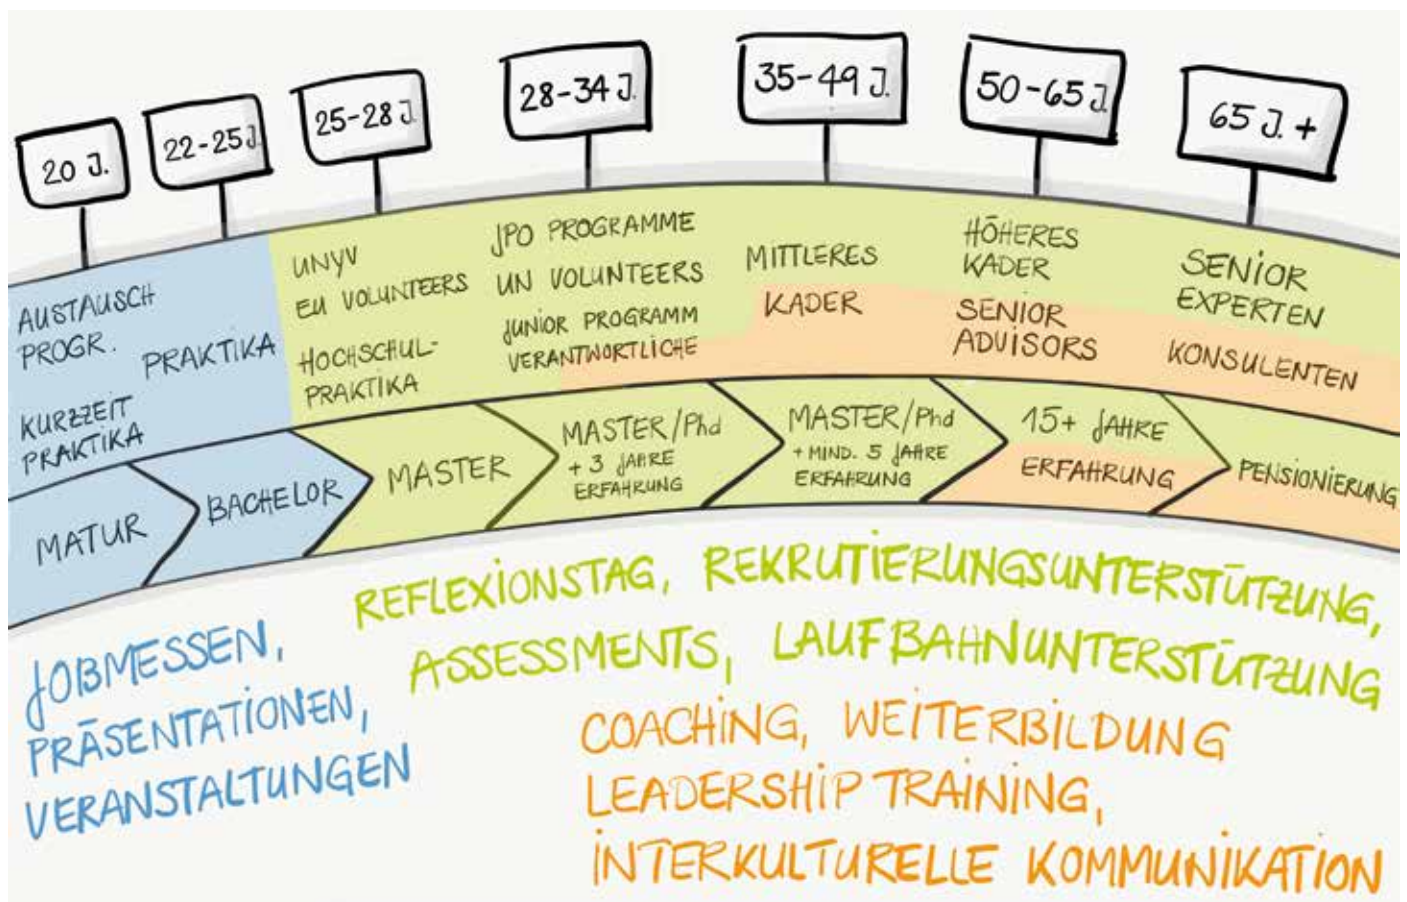 20 J.
22-25 J.
25-28 J.
28-34 J.
35-49 J.
50-65 J.
65 J. +
AUSTAUSCH
PROGR.
KURZZEIT
PRAKTIKA
PRAKTIKA
UNYV
EU VOLUNTEERS
HOCHSCHUL-
PRAKTIKA
JPO PROGRAMME
UN VOLUNTEERS
JUNIOR PROGRAMM
VERANTWORTLICHE
MITTLERES
KADER
HÖHERES
KADER
SENIOR
ADVISORS
SENIOR
EXPERTEN
KONSULENTEN
MATUR
BACHELOR
MASTER
MASTER/Phd
+ 3 JAHRE
ERFAHRUNG
MASTER/Phd
+ MIND. 5 JAHRE
ERFAHRUNG
15+ JAHRE
ERFAHRUNG
PENSIONIERUNG
JOBMESSEN,
PRÄSENTATIONEN,
VERANSTALTUNGEN
REFLEXIONSTAG, REKRUTIERUNGSUNTERSTÜTZUNG,
ASSESSMENTS, LAUFBAHNUNTERSTÜTZUNG
COACHING, WEITERBILDUNG
LEADERSHIP TRAINING,
INTERKULTURELLE KOMMUNIKATION